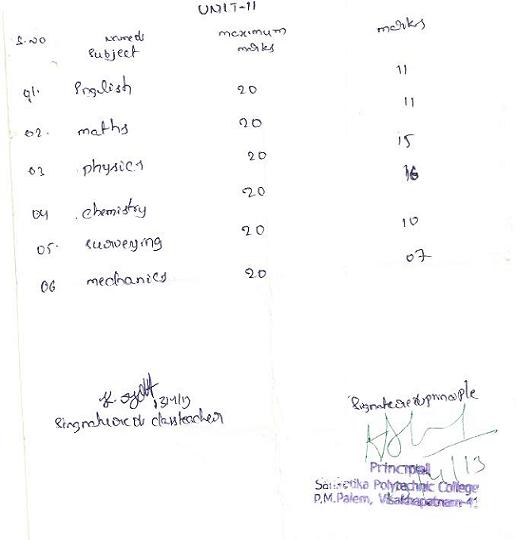 UNIT-11
S.NO Name of Subject maximum marks marks
01. English 20 11
02. maths 20 11
03 physics 20 15
04 chemistry 20 16
05. surveying 20 10
06 mechanics 20 07
Singnature of classteacher
Singnature of principle
Principal
Polytechnic College
P.M.Palem, Visakhapatnam-41